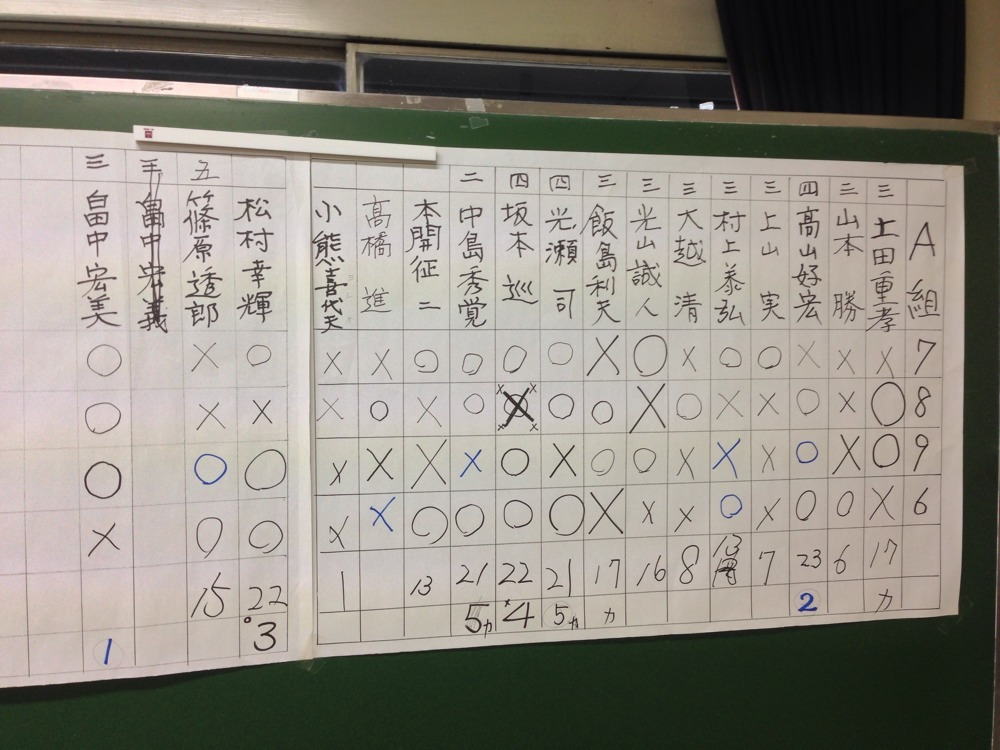 A組 7 8 9 6
三 土田重孝 × ○ ○ × 17 カ
山本 勝 × × × ○ 6
四 高山好宏 × ○ ○ ○ 23 2
三 上山 実 ○ × × × 7
三 村上泰弘 ○ × × ○ 13
三 大越 清 × ○ × × 8
三 光山誠人 ○ × ○ × 16
三 飯島利夫 × ○ ○ × 17 カ
四 光瀬 司 ○ ○ × ○ 21 5カ
四 坂本 巡 ○ × ○ ○ 22 4
二 中島秀覚 ○ ○ × ○ 21 5カ
本開征二 ○ × × ○ 13
髙橋 進 × ○ × ×
小熊喜代夫 × × × × 1
松村幸輝 ○ × ○ ○ 22 3
五 篠原透郎 × × ○ ○ 15
三 畠中宏美 ○ ○ ○ × 1